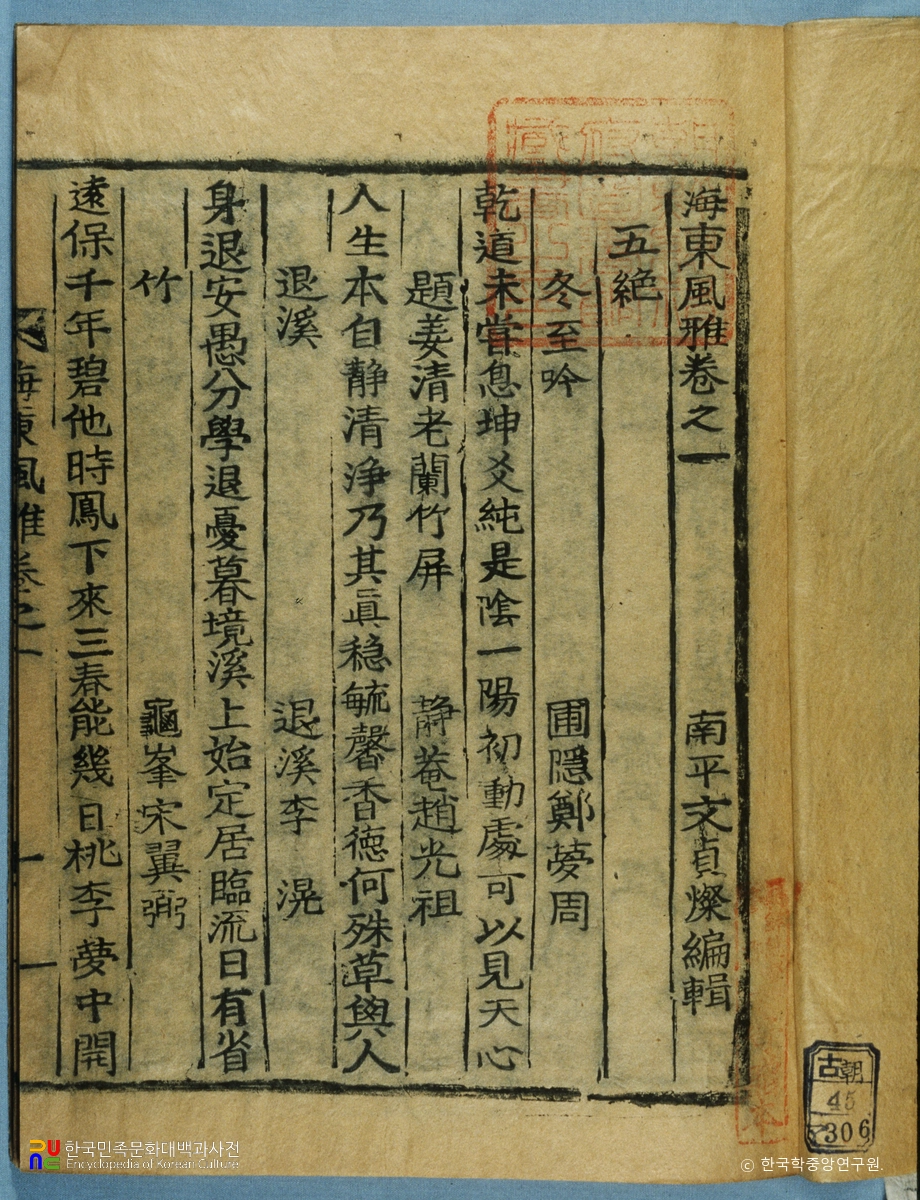 海東風雅卷之一 南平文貞燦編輯
五絶
冬至吟 圃隱鄭夢周
乾道未嘗息坤爻純是陰一陽初動處可以見天心
題姜清老蘭竹屏 静菴趙光祖
人生本自静清浄乃其眞稳毓馨香德何殊草與人
退溪 退溪李滉
身退安愚分學退憂暮境溪上始定居臨流日有省
竹 龜峯宋翼弼
遠保千年碧他時鳳下來三春能幾日桃李夢中開
海東風雅卷之一 一
古朝
45
306
한국민족문화대백과사전
Encyclopedia of Korean Culture
© 한국학중앙연구원.